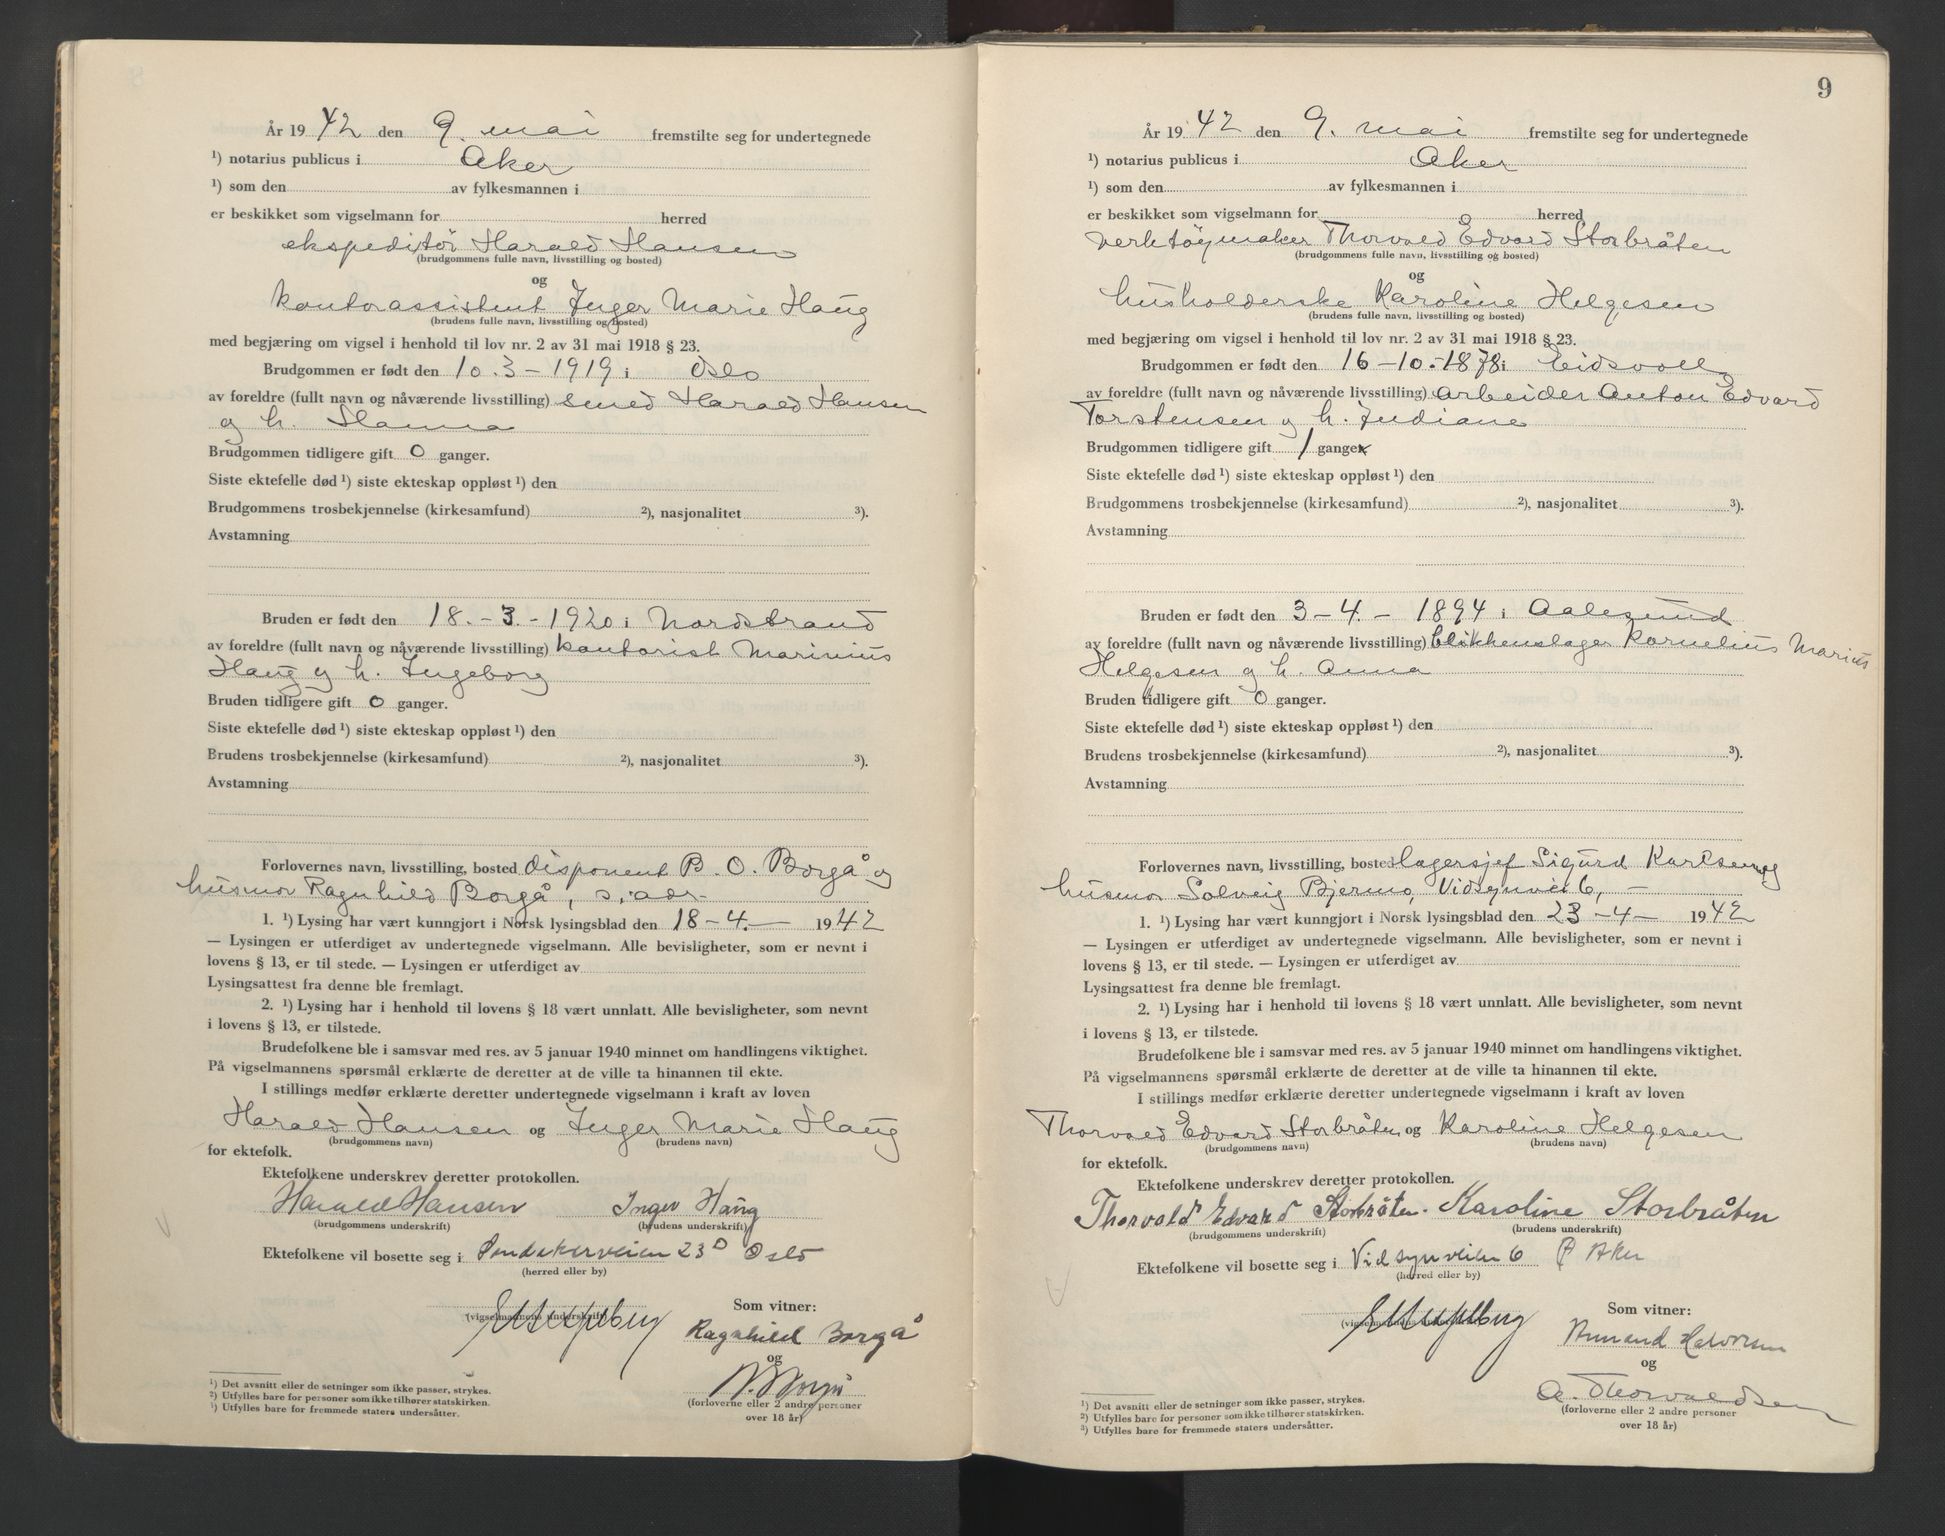 År 1942 den 9. mai fremstilte seg for undertegnede
¹) notarius publicus i Aker
¹) som den av fylkesmannen i
er beskikket som vigselmann for herred
ekspeditør Harald Hansen
(brudgommens fulle navn, livsstilling og bosted)
og
kontorassistent Inger Marie Haug
(brudens fulle navn, livsstilling og bosted)
med begjæring om vigsel i henhold til lov nr. 2 av 31 mai 1918 § 23.
Brudgommen er født den 10.3-1919 i Oslo
av foreldre (fullt navn og nåværende livsstilling) smed Harald Hansen
og h. Hanna
Brudgommen tidligere gift 0 ganger.
Siste ektefelle død ¹) siste ekteskap oppløst ¹) den
Brudgommens trosbekjennelse (kirkesamfund) ²), nasjonalitet ³).
Avstamning
Bruden er født den 18.-3.-1920 i Nordstrand
av foreldre (fullt navn og nåværende livsstilling) kontorist Marinius
Haug og h. Ingeborg
Bruden tidligere gift 0 ganger.
Siste ektefelle død ¹) siste ekteskap oppløst ¹) den
Brudens trosbekjennelse (kirkesamfund) ²), nasjonalitet ³).
Avstamning
Forlovernes navn, livsstilling, bosted disponent B. O. Borgå og
husmor Ragnhild Borgå, s. adr.
1. ¹) Lysing har vært kunngjort i Norsk lysingsblad den 18-4.- 1942
— Lysingen er utferdiget av undertegnede vigselmann. Alle bevisligheter, som er nevnt i
lovens § 13, er til stede. — Lysingen er utferdiget av
Lysingsattest fra denne ble fremlagt.
2. ¹) Lysing har i henhold til lovens § 18 vært unnlatt. Alle bevisligheter, som nevnt
i lovens § 13, er tilstede.
Brudefolkene ble i samsvar med res. av 5 januar 1940 minnet om handlingens viktighet.
På vigselmannens spørsmål erklærte de deretter at de ville ta hinannen til ekte.
I stillings medfør erklærte deretter undertegnede vigselmann i kraft av loven
Harald Hansen og Inger Marie Haug
(brudgommens navn) (brudens navn)
for ektefolk.
Ektefolkene underskrev deretter protokollen.
Harald Hansen Inger Haug
(brudgommens underskrift) (brudens underskrift)
Ektefolkene vil bosette seg i Sandakerveien 23D Oslo
(herred eller by)
(vigselmannens underskrift)
Som vitner:
Ragnhild Borgå
og
(forloverne eller 2 andre personer
over 18 år)
¹) Det avsnitt eller de setninger som ikke passer, strykes.
²) Utfylles bare for personer som ikke tilhører statskirken.
³) Utfylles bare for fremmede staters undersåtter.
9
År 1942 den 9. mai fremstilte seg for undertegnede
¹) notarius publicus i Aker
¹) som den av fylkesmannen i
er beskikket som vigselmann for herred
verktøymaker Thorvald Edvard Storbråten
(brudgommens fulle navn, livsstilling og bosted)
og
husholderske Karoline Helgesen
(brudens fulle navn, livsstilling og bosted)
med begjæring om vigsel i henhold til lov nr. 2 av 31 mai 1918 § 23.
Brudgommen er født den 16-10.-1878 i Eidsvoll
av foreldre (fullt navn og nåværende livsstilling) arbeider Anton Edvard
Torstensen og h. Indiane
Brudgommen tidligere gift 1 ganger
Siste ektefelle død ¹) siste ekteskap oppløst ¹) den
Brudgommens trosbekjennelse (kirkesamfund) ²), nasjonalitet ³).
Avstamning
Bruden er født den 3-4.- 1894 i Aalesund
av foreldre (fullt navn og nåværende livsstilling) blikkenslager Kornelius Marius
Helgesen og h. Anna
Bruden tidligere gift 0 ganger.
Siste ektefelle død ¹) siste ekteskap oppløst ¹) den
Brudens trosbekjennelse (kirkesamfund) ²), nasjonalitet ³).
Avstamning
Forlovernes navn, livsstilling, bosted lagersjef Sigurd Karlsen og
husmor Solveig Bjermo, Vidsynvei 6, -
1. ¹) Lysing har vært kunngjort i Norsk lysingsblad den 23-4- 1942
— Lysingen er utferdiget av undertegnede vigselmann. Alle bevisligheter, som er nevnt i
lovens § 13, er til stede. — Lysingen er utferdiget av
Lysingsattest fra denne ble fremlagt.
2. ¹) Lysing har i henhold til lovens § 18 vært unnlatt. Alle bevisligheter, som nevnt
i lovens § 13, er tilstede.
Brudefolkene ble i samsvar med res. av 5 januar 1940 minnet om handlingens viktighet.
På vigselmannens spørsmål erklærte de deretter at de ville ta hinannen til ekte.
I stillings medfør erklærte deretter undertegnede vigselmann i kraft av loven
Thorvald Edvard Storbråten og Karoline Helgesen
(brudgommens navn) (brudens navn)
for ektefolk.
Ektefolkene underskrev deretter protokollen.
Thorvald Edvard Storbråten. Karoline Storbråten
(brudgommens underskrift) (brudens underskrift)
Ektefolkene vil bosette seg i Vidsynveien 6 Aker
(herred eller by)
Som vitner:
Amand Halvorsen
og
A. Thorvaldsen
(forloverne eller 2 andre personer
over 18 år)
¹) Det avsnitt eller de setninger som ikke passer, strykes.
²) Utfylles bare for personer som ikke tilhører statskirken.
³) Utfylles bare for fremmede staters undersåtter.